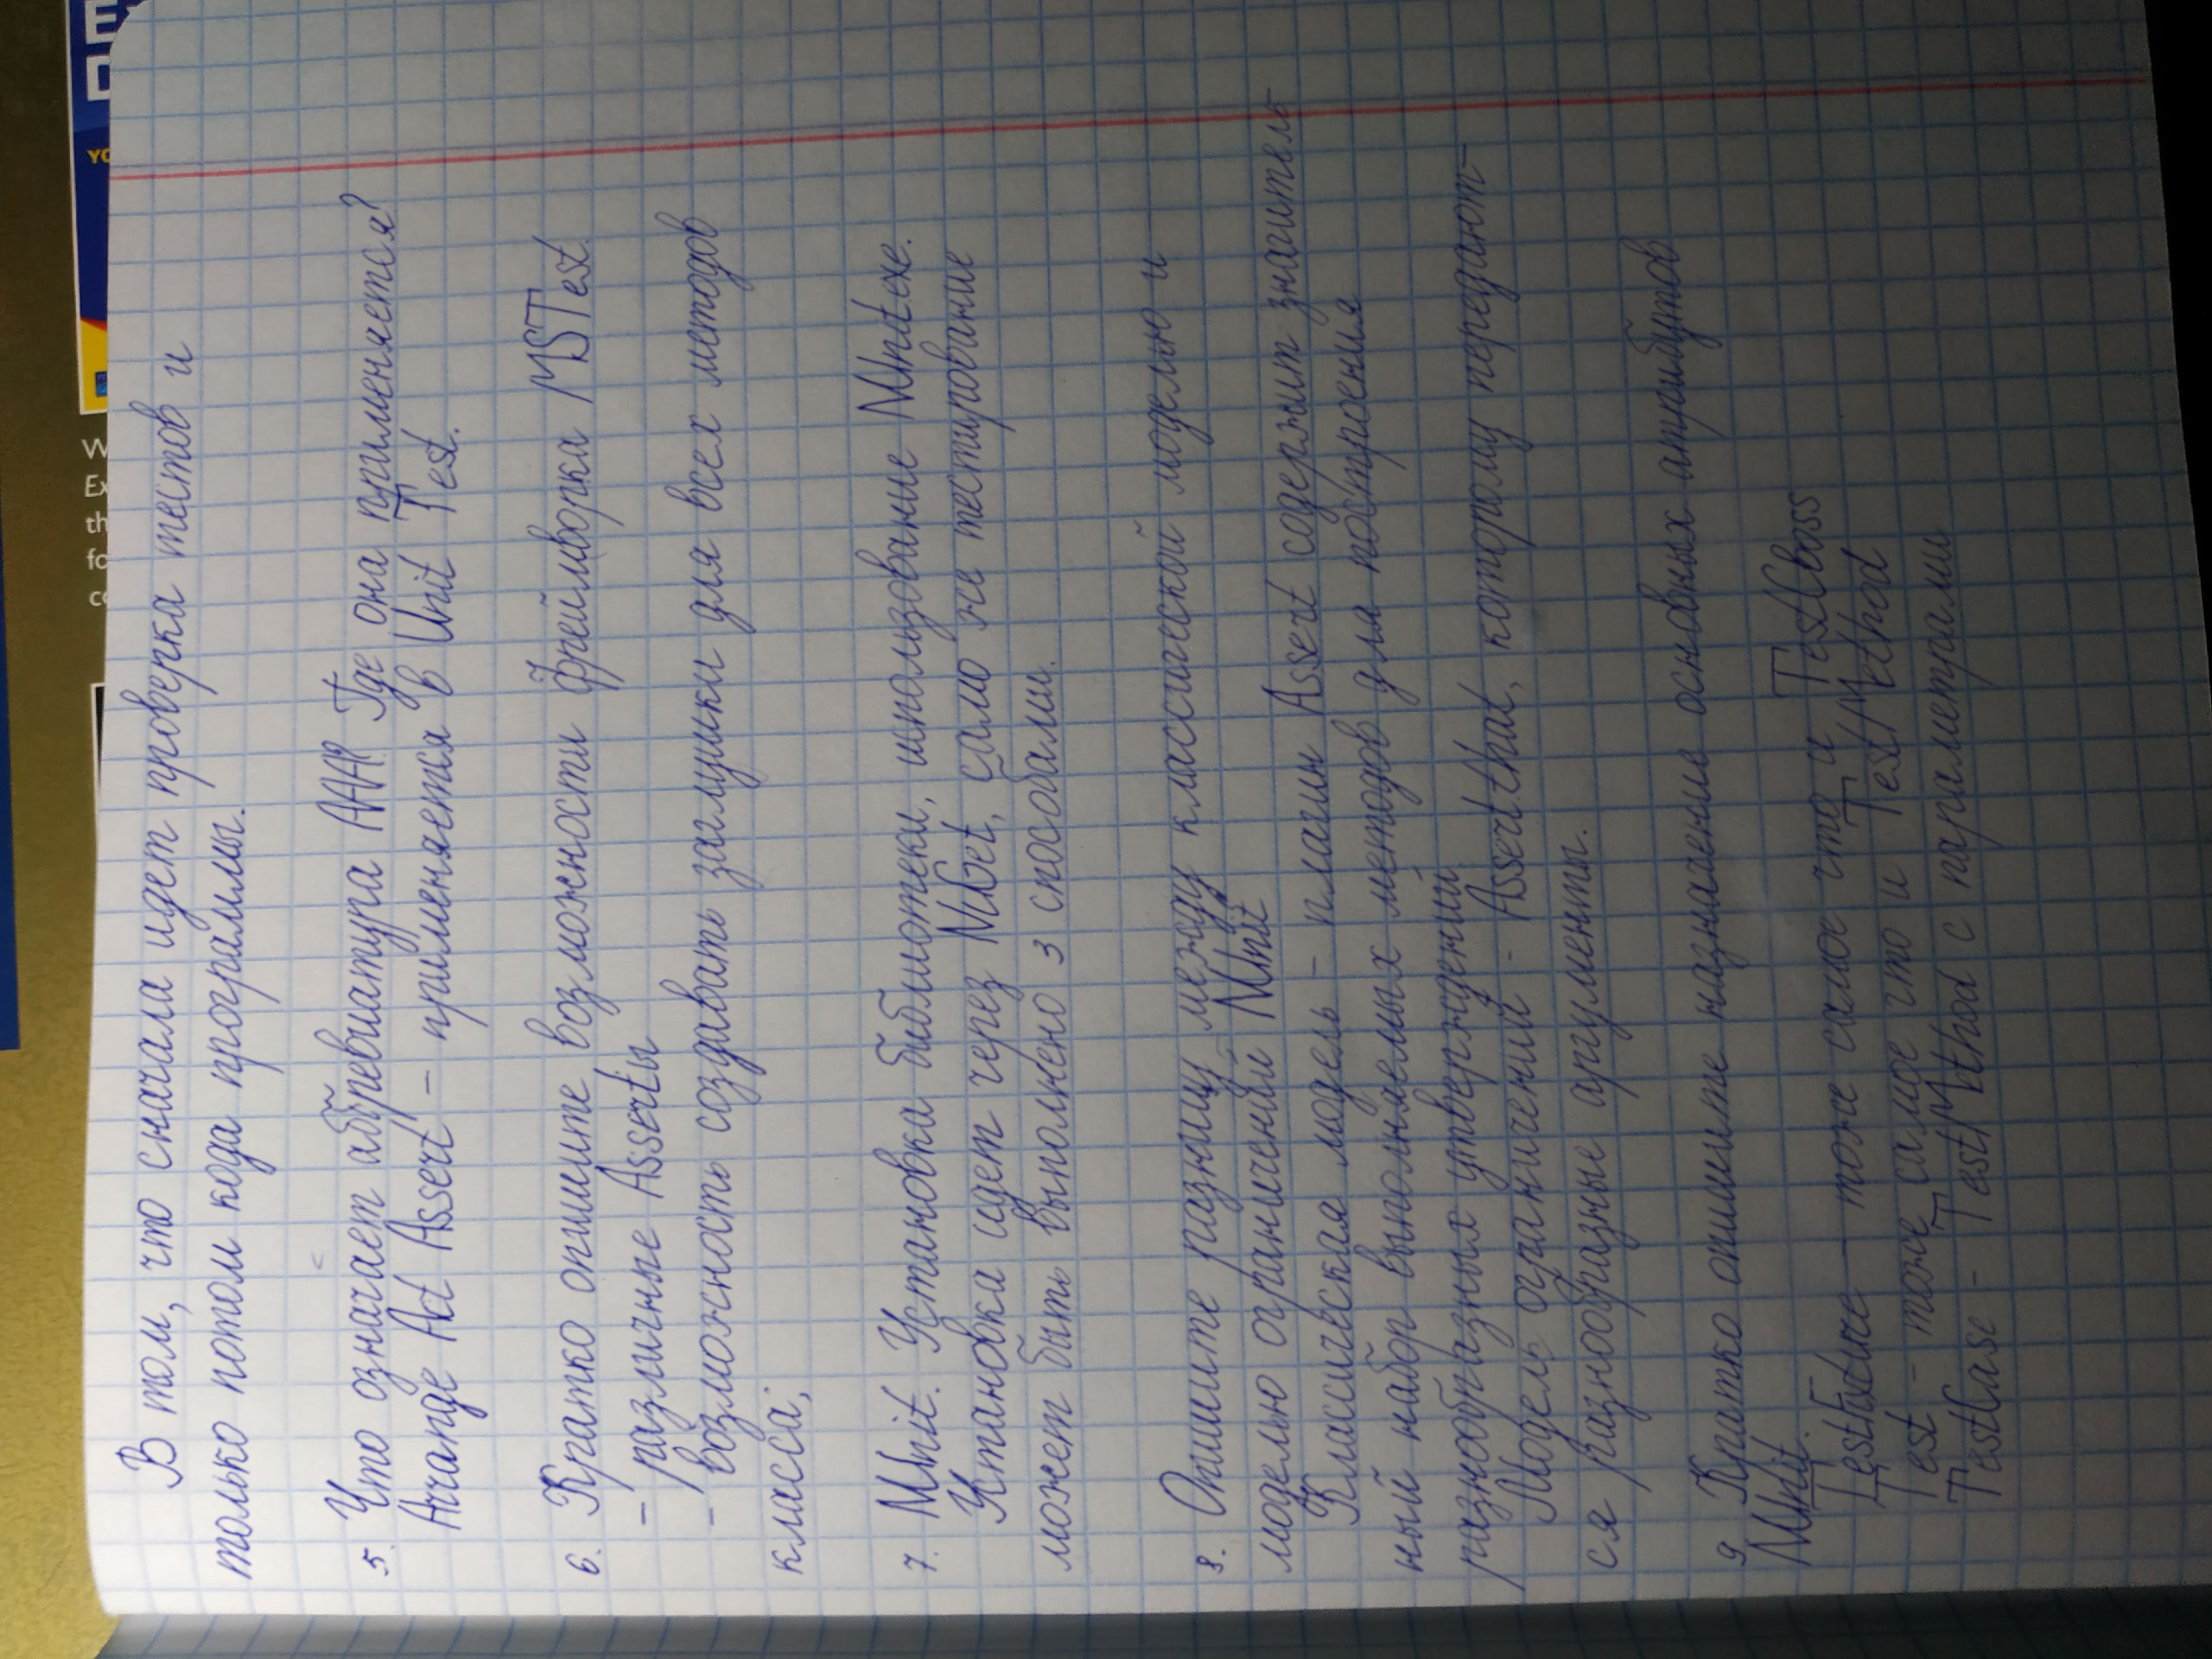 В том, что сначала идет проверка тестов и
только потом кода программы.
5. Что означает аббревиатура AAA? Где она применяется?
Arrange Act Assert – применяется в Unit Test.
6. Кратко опишите возможности фреймворка MSTest.
– различные Assertы
– возможность создавать заглушки для всех методов
класса;
7. NUnit. Установка библиотеки, использование NUnit.exe.
Установка идет через NuGet, само же тестирование
может быть выполнено 3 способами.
8. Опишите разницу между классической моделью и
моделью ограничений NUnit
Классическая модель – плагин Assert содержит значитель-
ный набор выполняемых методов для построения
разнообразных утверждений.
Модель ограничений – Assert.that, которому передают-
ся разнообразные аргументы.
9. Кратко опишите назначение основных атрибутов
NUnit.
TestFixture – тоже самое что и TestClass
Test – тоже самое что и TestMethod
TestCase – TestMethod с параметрами